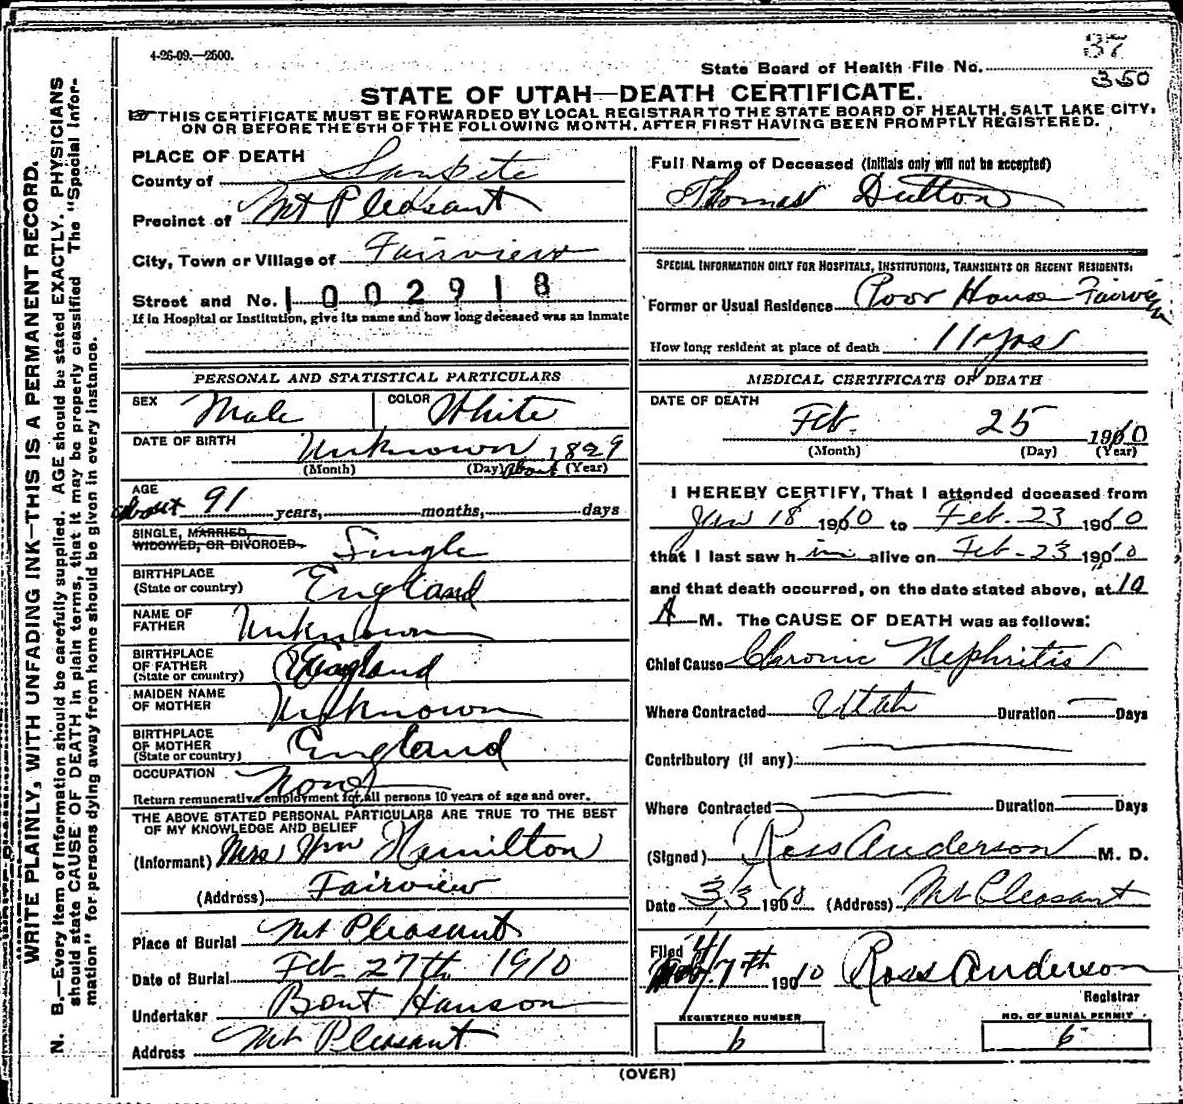 4-26-09.—2500.
37
State Board of Health File No.
350
STATE OF UTAH—DEATH CERTIFICATE.
THIS CERTIFICATE MUST BE FORWARDED BY LOCAL REGISTRAR TO THE STATE BOARD OF HEALTH, SALT LAKE CITY,
ON OR BEFORE THE 5TH OF THE FOLLOWING MONTH, AFTER FIRST HAVING BEEN PROMPTLY REGISTERED.
WRITE PLAINLY, WITH UNFADING INK—THIS IS A PERMANENT RECORD.
N. B.—Every item of information should be carefully supplied. AGE should be stated EXACTLY. PHYSICIANS
should state CAUSE OF DEATH in plain terms, that it may be properly classified The "Special Infor-
mation" for persons dying away from home should be given in every instance.
PLACE OF DEATH
County of Sanpete
Precinct of Mt Pleasant
City, Town or Village of Fairview
Street and No. 1002918
If in Hospital or Institution, give its name and how long deceased was an inmate
PERSONAL AND STATISTICAL PARTICULARS
SEX Male COLOR White
DATE OF BIRTH Unknown 1829
(Month) (Day) about (Year)
AGE
about 91 years, months, days
SINGLE, MARRIED,
WIDOWED, OR DIVORCED Single
BIRTHPLACE
(State or country) England
NAME OF
FATHER Unknown
BIRTHPLACE
OF FATHER
(State or country) England
MAIDEN NAME
OF MOTHER Unknown
BIRTHPLACE
OF MOTHER
(State or country) England
OCCUPATION None
Return remunerative employment for all persons 10 years of age and over.
THE ABOVE STATED PERSONAL PARTICULARS ARE TRUE TO THE BEST
OF MY KNOWLEDGE AND BELIEF
(Informant) Mrs Wm Hamilton
(Address) Fairview
Place of Burial Mt Pleasant
Date of Burial Feb. 27th 1910
Undertaker Bent Hanson
Address Mt Pleasant
Full Name of Deceased (Initials only will not be accepted)
Thomas Dutton
SPECIAL INFORMATION ONLY FOR HOSPITALS, INSTITUTIONS, TRANSIENTS OR RECENT RESIDENTS:
Former or Usual Residence Poor House Fairview
How long resident at place of death 11 yrs
MEDICAL CERTIFICATE OF DEATH
DATE OF DEATH
Feb. 25 1910
(Month) (Day) (Year)
I HEREBY CERTIFY, That I attended deceased from
Jan 18 1910 to Feb. 23 1910
that I last saw him alive on Feb-23 1910
and that death occurred, on the date stated above, at 10
A M. The CAUSE OF DEATH was as follows:
Chief Cause Chronic Nephritis
Where Contracted Utah Duration Days
Contributory (if any):
Where Contracted Duration Days
(Signed) Ross Anderson M. D.
Date 3/3 1910 (Address) Mt Pleasant
Filed 4/7th 1910 Ross Anderson
Registrar
REGISTERED NUMBER
6
NO. OF BURIAL PERMIT
6
(OVER)